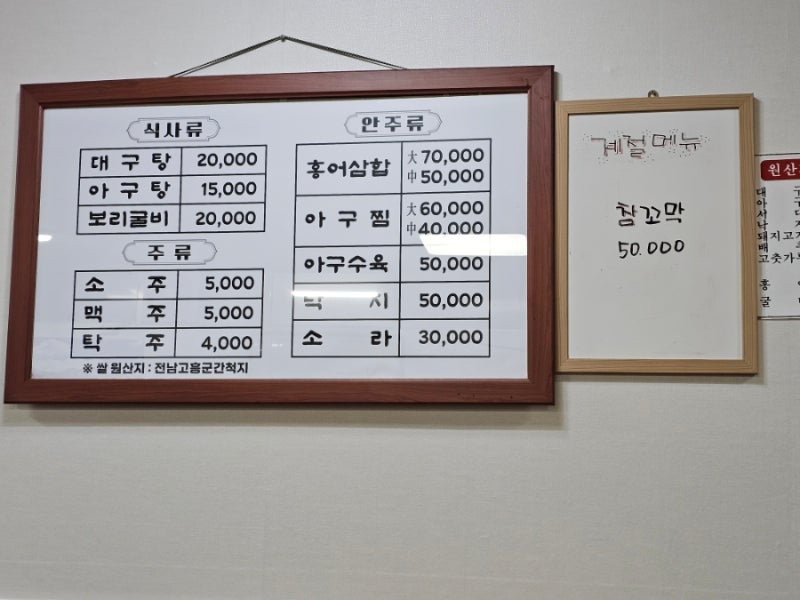 식사류
대구탕 20,000
아구탕 15,000
보리굴비 20,000
주류
소주 5,000
맥주 5,000
탁주 4,000
※ 쌀 원산지 : 전남고흥군간척지
안주류
홍어삼합 大 70,000
中 50,000
아구찜 大 60,000
中 40,000
아구수육 50,000
50,000
소라 30,000
계절메뉴
참꼬막
50.000
원산
대 구
아 구
서 대
낙 지
돼지고기
배
고춧가루
홍
굴